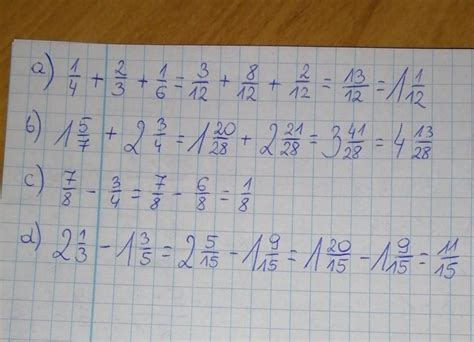 a) 1/4 + 2/3 + 1/6 = 3/12 + 8/12 + 2/12 = 13/12 = 1 1/12
б) 1 5/7 + 2 3/4 = 1 20/28 + 2 21/28 = 3 41/28 = 4 13/28
c) 7/8 - 3/4 = 7/8 - 6/8 = 1/8
d) 2 1/3 - 1 3/5 = 2 5/15 - 1 9/15 = 1 20/15 - 1 9/15 = 11/15